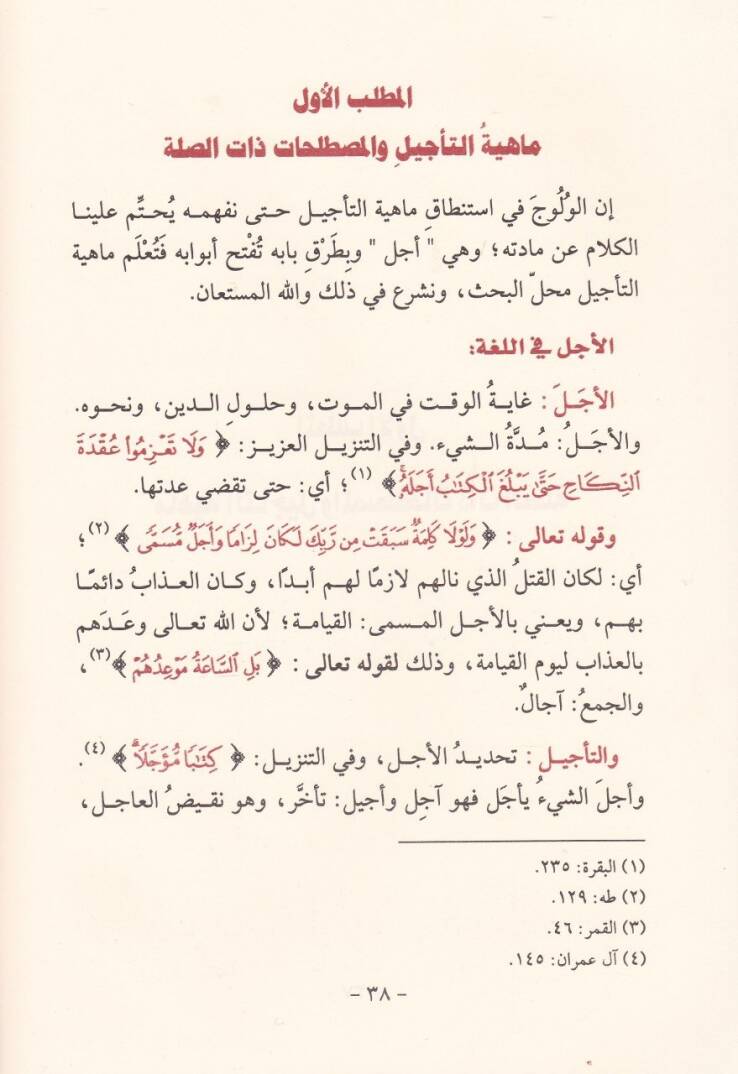 المطلب الأول
ماهيةُ التأجيلِ والمصطلحات ذات الصلة
إن الوُلُوجَ في استنطاقِ ماهية التأجيل حتى نفهمه يُحتِّم علينا
الكلام عن مادته؛ وهي " أجل " وبِطَرْقِ بابه تُفْتح أبوابه فَتُعْلَم ماهية
التأجيل محلّ البحث، ونشرع في ذلك والله المستعان.
الأجل في اللغة:
الأجَلَ : غايةُ الوقت في الموت، وحلولِ الدين، ونحوه.
والأجَلُ: مُدَّةُ الشيء. وفي التنزيل العزيز: ﴿ وَلَا تَعْزِمُوا۟ عُقْدَةَ
ٱلنِّكَاحِ حَتَّىٰ يَبْلُغَ ٱلْكِتَٰبُ أَجَلَهُۥۚ ﴾ (١)؛ أي: حتى تقضي عدتها.
وقوله تعالى : ﴿ وَلَوْلَا كَلِمَةٌ سَبَقَتْ مِن رَّبِّكَ لَكَانَ لِزَامًا وَأَجَلٌ مُّسَمًّى ﴾ (٢)؛
أي: لكان القتلُ الذي نالهم لازمًا لهم أبدًا، وكان العذابُ دائمًا
بهم، ويعني بالأجل المسمى: القيامة؛ لأن الله تعالى وعَدَهم
بالعذاب ليوم القيامة، وذلك لقوله تعالى : ﴿ بَلِ ٱلسَّاعَةُ مَوْعِدُهُمْ ﴾(٣)،
والجمعُ: آجالٌ.
والتأجيل : تحديدُ الأجل، وفي التنزيل: ﴿ كِتَٰبًا مُّؤَجَّلًاۗ ﴾ (٤).
وأجلَ الشيءُ يأجَل فهو آجِل وأجيل: تأخَّر، وهو نقيضُ العاجل،
(١) البقرة: ٢٣٥.
(٢) طه: ١٢٩.
(٣) القمر: ٤٦.
(٤) آل عمران: ١٤٥.
- ٣٨ -